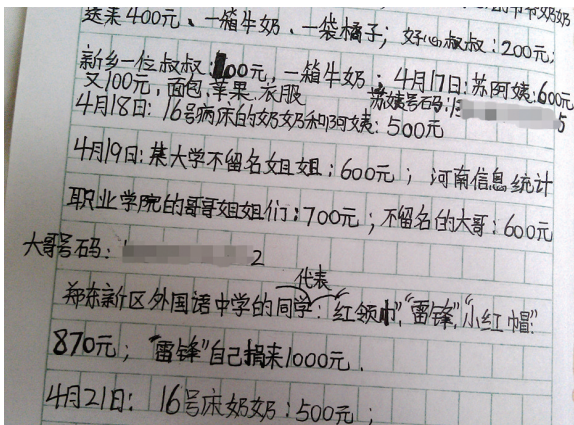 的爷爷奶奶
送来400元、一箱牛奶、一袋橘子；好心叔叔：200元；
新乡一位叔叔：100元，一箱牛奶；4月17日：苏阿姨：600元
又100元，面包、苹果、衣服 苏姨号码：1 5
4月18日：16号病床的奶奶和阿姨：500元
4月19日：某大学不留名姐姐：600元；河南信息统计
职业学院的哥哥姐姐们：700元；不留名的大哥：600元
大哥号码：1 2
代表
郑东新区外国语中学的同学：“红领巾”，“雷锋”，“小红帽”：
870元；“雷锋”自己捐来1000元．
4月21日：16号床奶奶：500元；